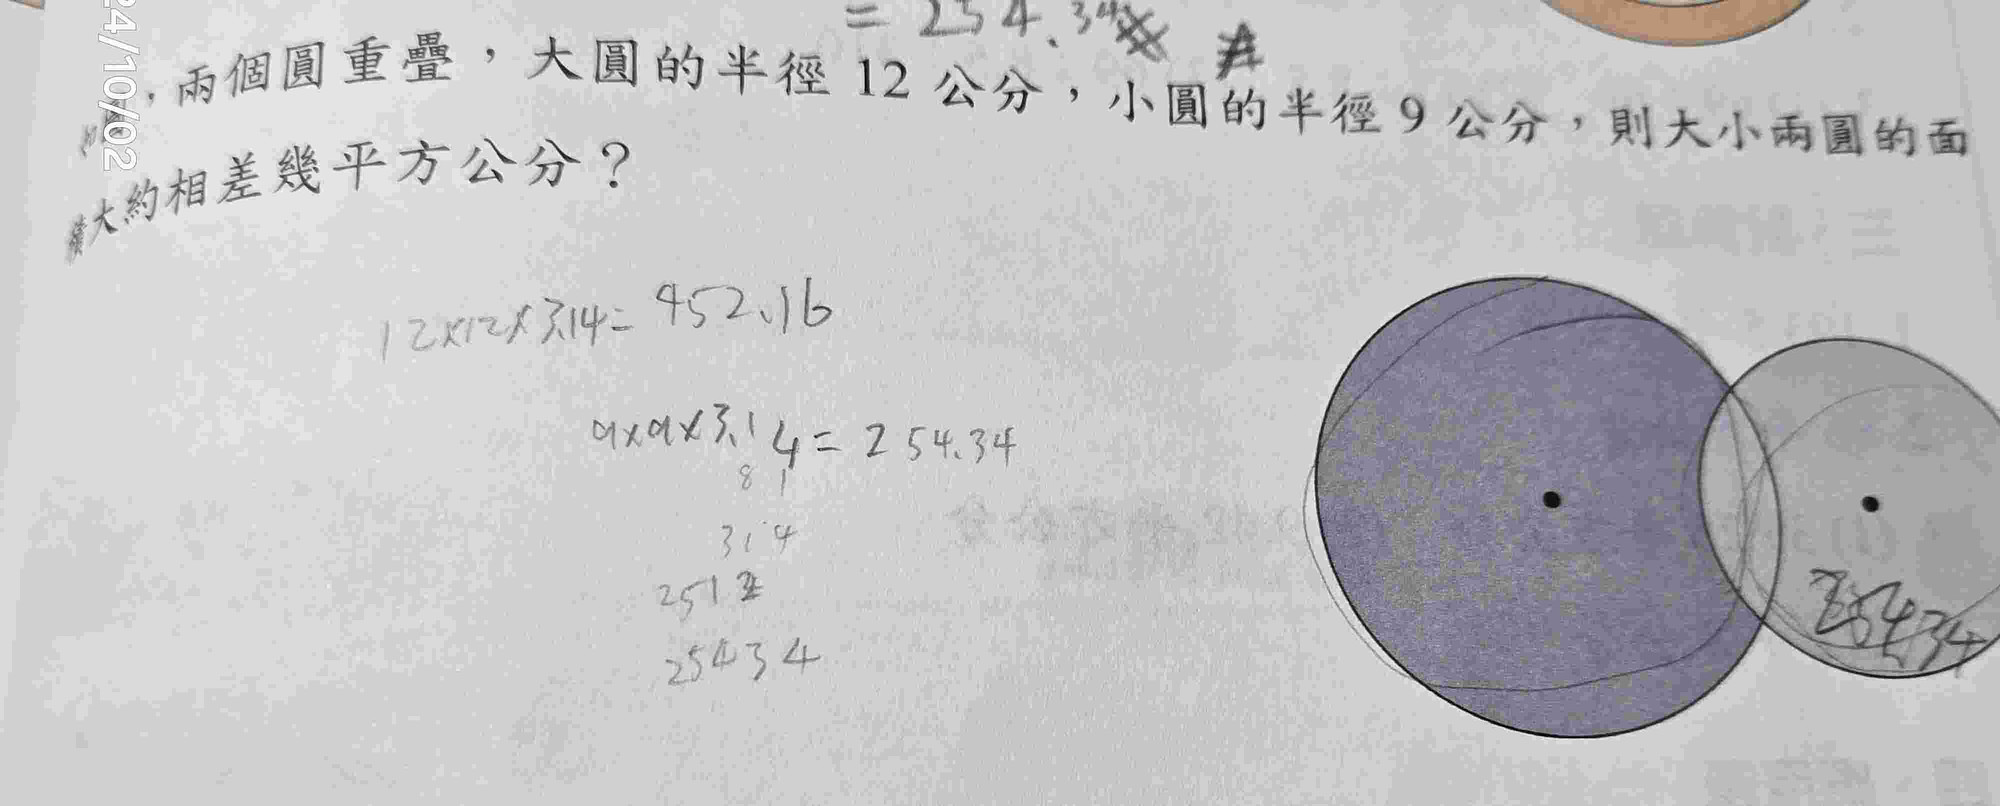 = 254.34
如圖，兩個圓重疊，大圓的半徑 12 公分，小圓的半徑 9 公分，則大小兩圓的面
積大約相差幾平方公分？
12×12×3.14= 452.16
9×9×3.14= 254.34
81
314
2512
25434
254.34
24/10/02